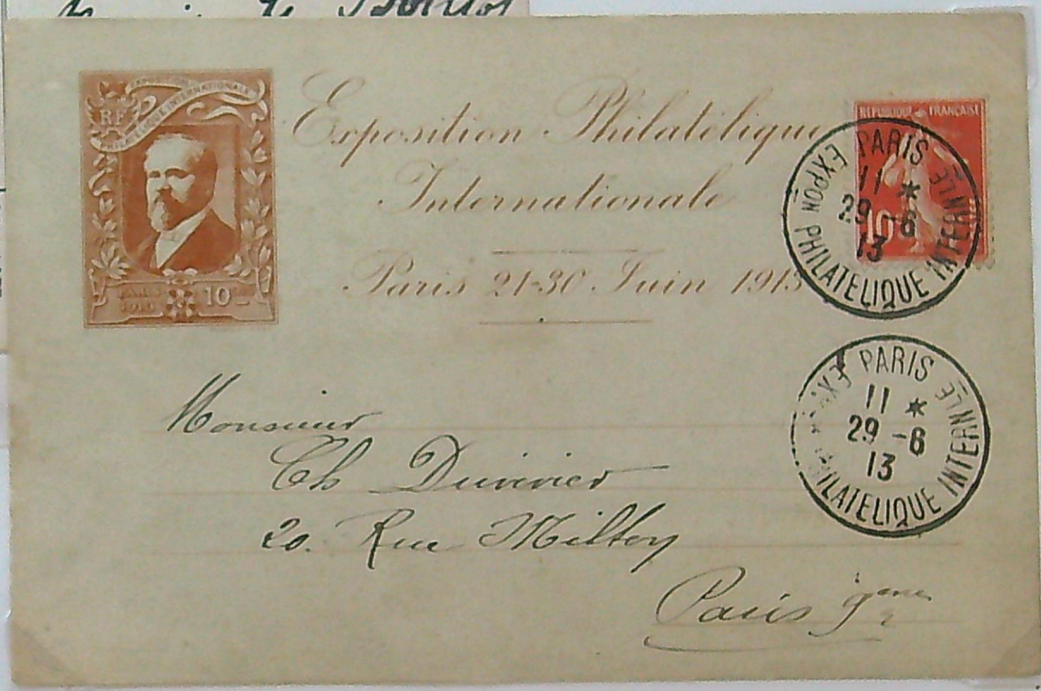 RF
EXPOSITION
PHILATÉLIQUE INTERNATIONALE
PARIS
1913
10
Exposition Philatélique
Internationale
Paris 21-30 Juin 1913
REPUBLIQUE FRANÇAISE
10
PARIS
EXPON PHILATELIQUE INTERNLE
11 *
29 - 6
13
PARIS
PHILATELIQUE INTERNLE
11 *
29 - 6
13
Monsieur
Ch Duvivier
20. Rue Milton
Paris 9eme